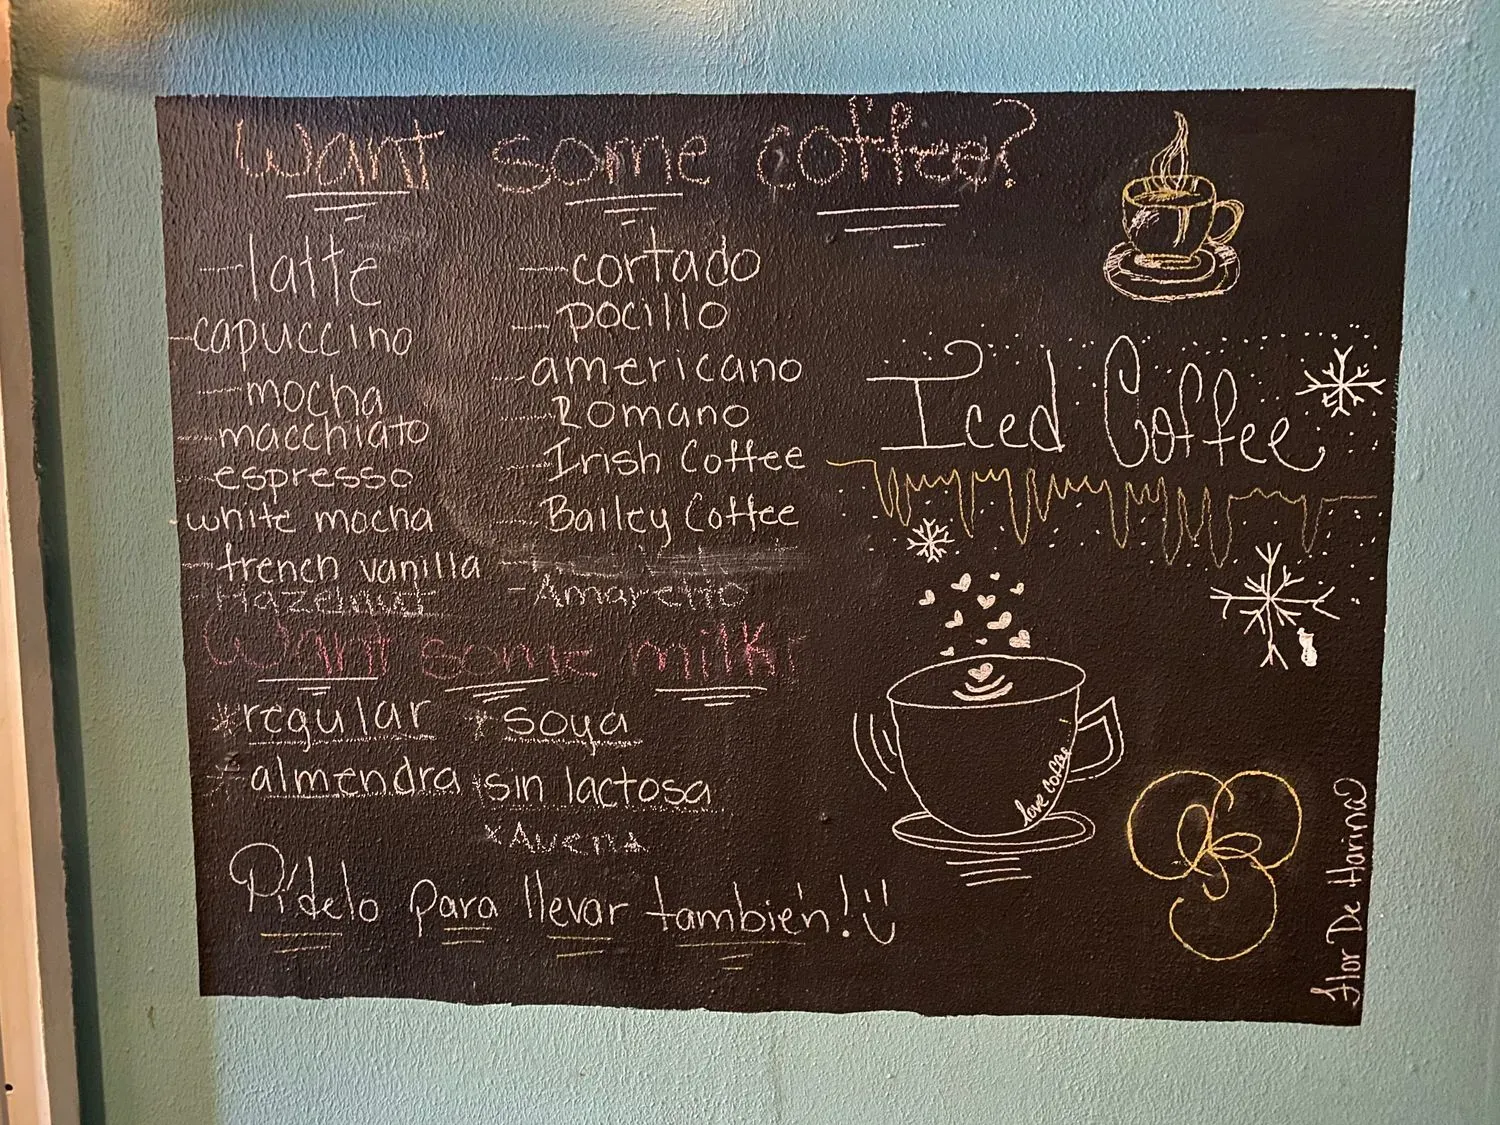 Want some coffee?
-latte
-capuccino
-mocha
-macchiato
-espresso
-white mocha
-french vanilla
Hazelnut
-cortado
-pocillo
-americano
-Romano
-Irish Coffee
-Bailey Coffee
-Amaretto
Want some milk?
*regular *soya
*almendra *sin lactosa
*Avena
Pídelo para llevar también! :)
Iced Coffee
love coffee
Flor De Harina